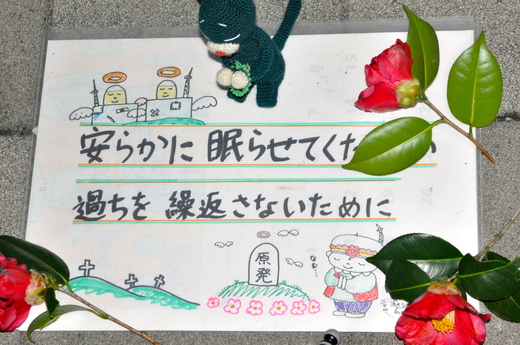 安らかに 眠らせてくだ い
過ちを 繰返さないために
原発
なむ…